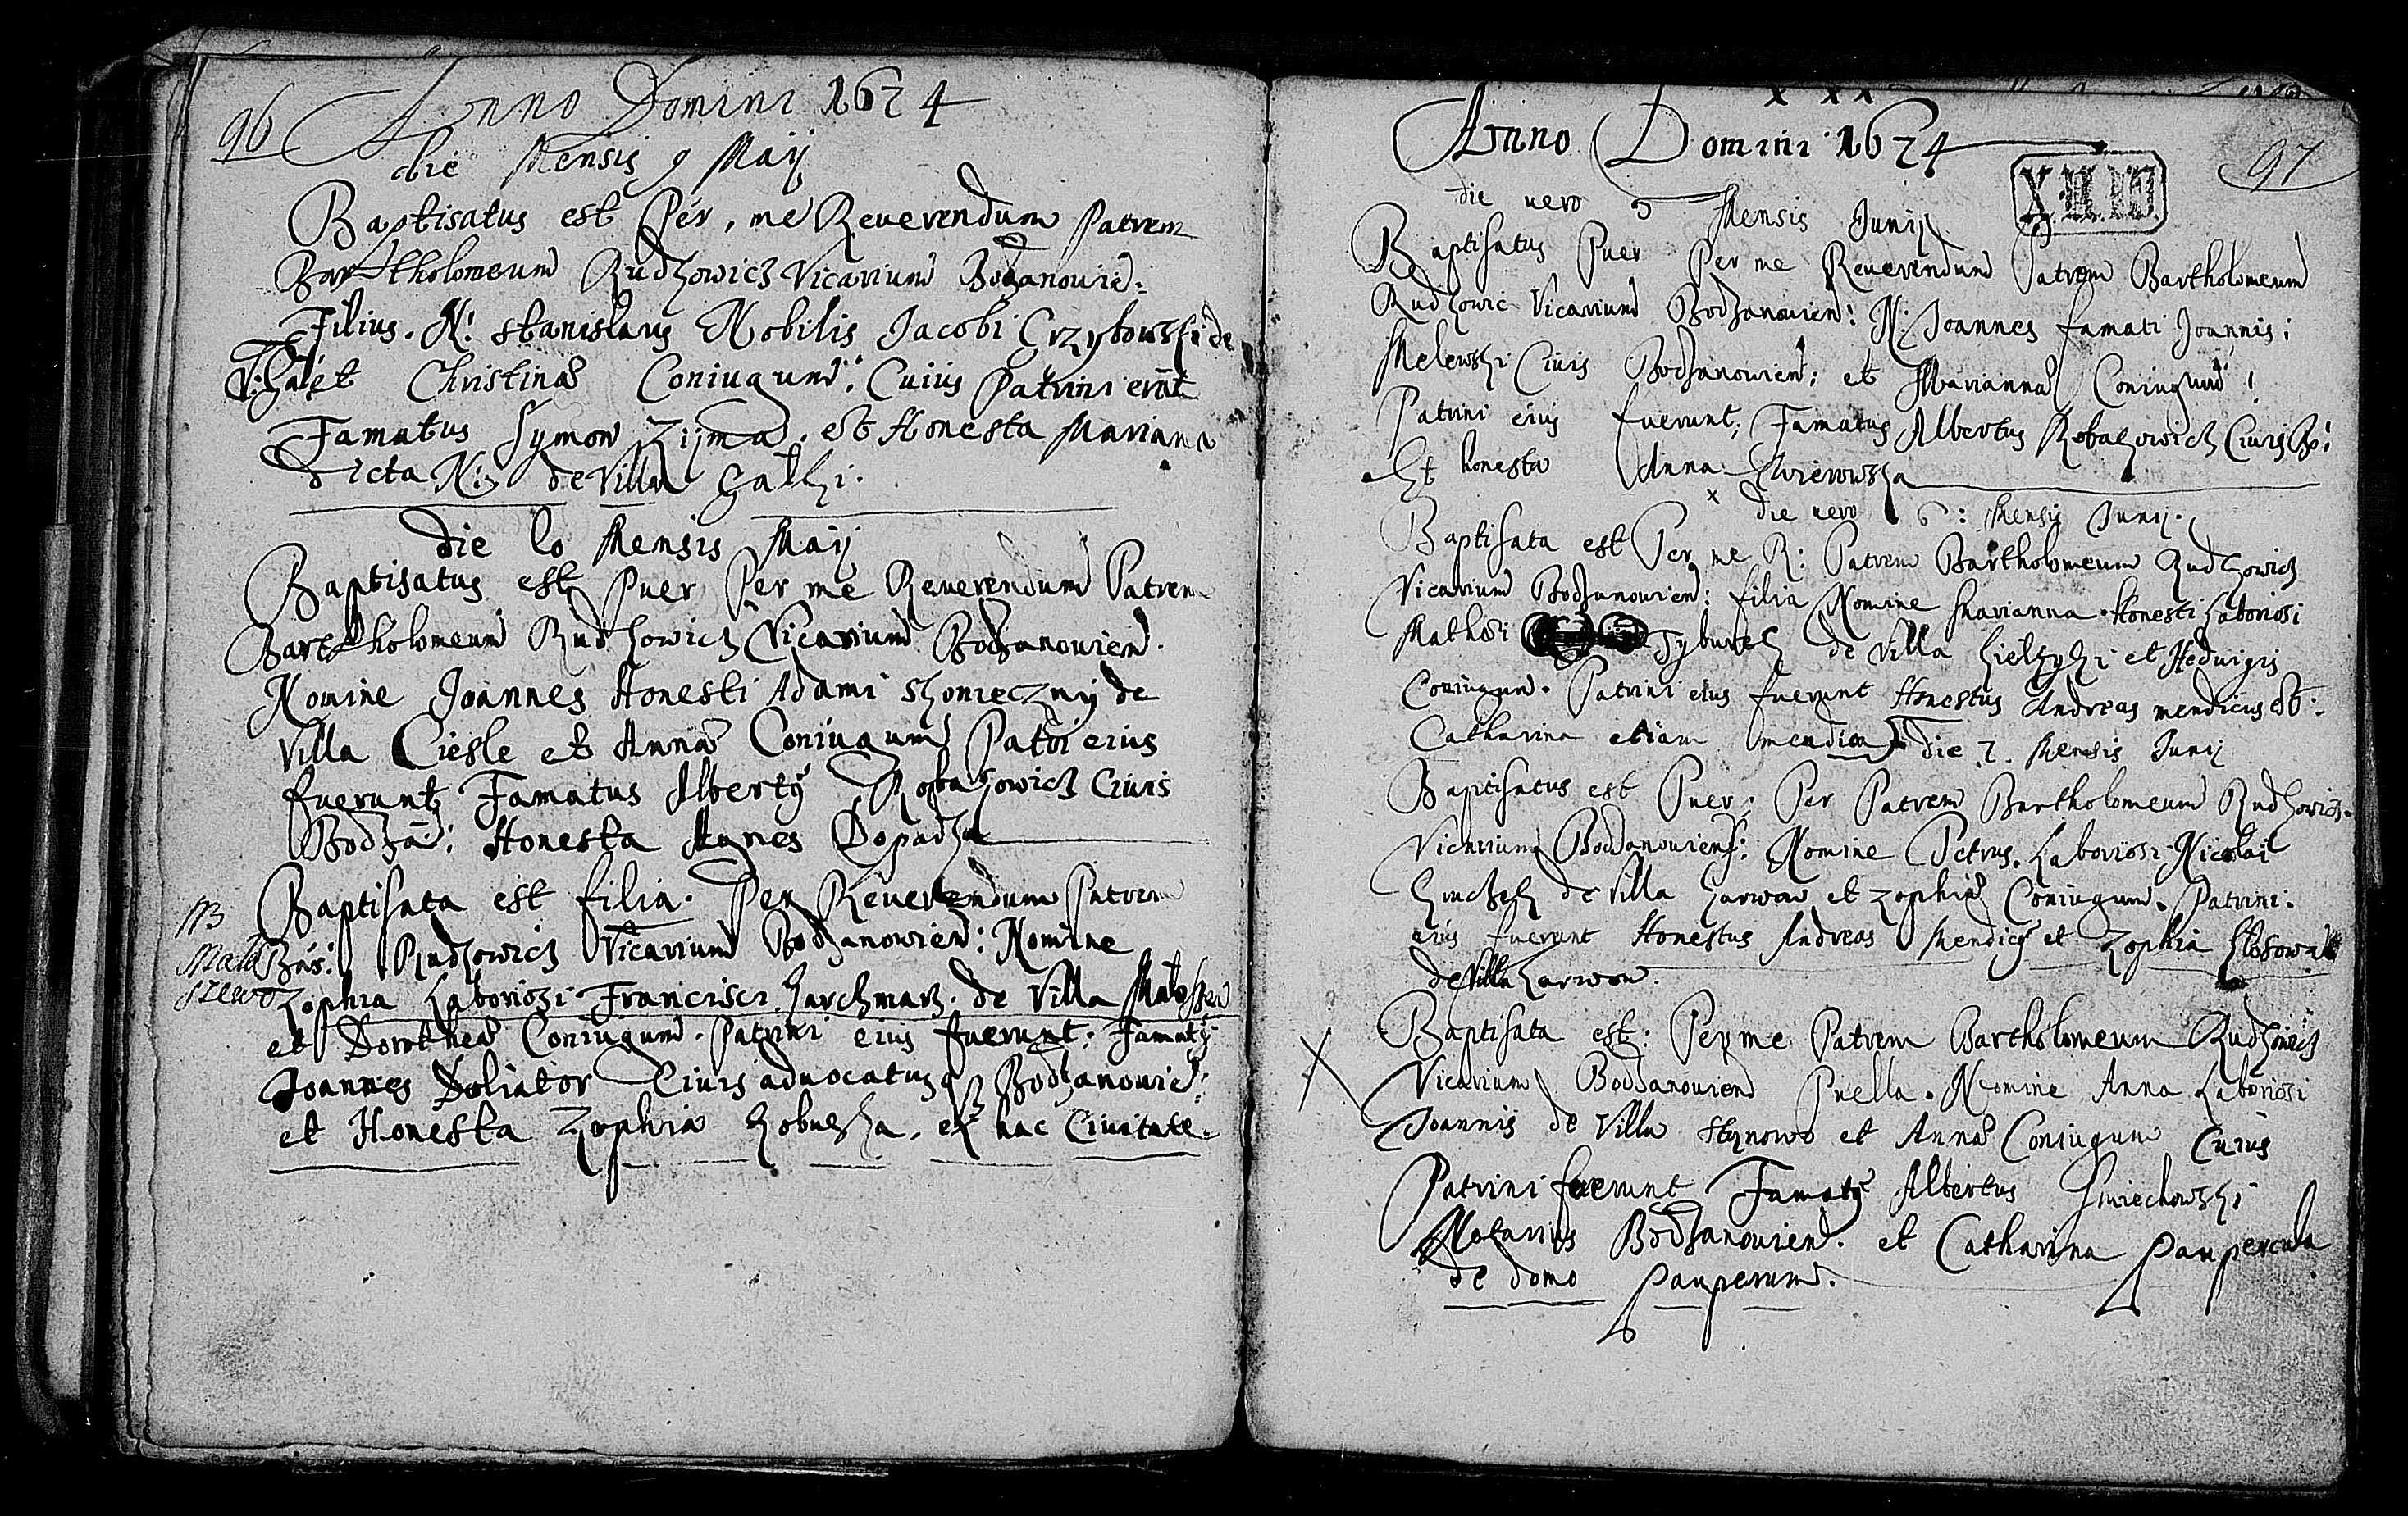 96 Anno Domini 1674
die Mensis 9 Maij
Baptisatus est Per, me Reuerendum Patrem
Bartholomeum Rudzowicz Vicarium Bodzanouie:
Filius. N: Stanislaus Nobilis Jacobi Grzybowski de
et Christinæ Coniugum: Cuius Patrini erãt
Famatus Symon Zijma. est Honesta Mariana
dicta N: de Villa Gałki.
die 10 Mensis Maij
Baptisatus est Puer Per me Reuerendum Patrem
Bartholomeum Rudzowicz Vicarium Bodzanouien.
Nomine Joannes Honesti Adami Skonieczny de
Villa Ciesle et Annæ Coniugum Patri eius
fuerunt Famatus Albertꝰ Robakowicz Ciuis
Bodzã: Honesta Agnes
Baptisata est filia. Per Reuerendum Patrem
NB
Rudzowicz Vicarium Bodzanowien: Nomine
Mała
szewo
Zophia Laboriosi Francisci Karczmarz. de Villa
et Dorotheæ Coniugum. Patrini eius fuerunt: Famatꝰ
Joannes Doliator Ciuis aduocatus Bodzanouie:
et Honesta Zophia, ex hac Ciuitate.
Anno Domini 1674
97
X.II.
die uero 5 Mensis Junij
Baptisatus Puer Per me Reuerendum Patrem Bartholomeum
Rudzowic Vicarium Bodzanouien: N: Joannes famati Joannis:
Melewski Ciuis Bodzanouien: et Mariannæ Coniugum!
Patrini eius fuerunt; Famatus Albertus Robakowicz Ciuis Bo:
Et honesta Anna
die uero 6: Mensis Junij.
Baptisata est Per me R: Patrem Bartholomeum Rudzowicz
Vicarium Bodzanouien: filia Nomine Marianna. Honesti Laboriosi
Mathæi Tyburek de Villa et Hedwigis
Coniugum. Patrini eius fuerunt Honestus Andreas mendicus et
Catharina etiam mendica die 7. Mensis Junij
Baptisatus est Puer; Per Patrem Bartholomeum Rudzowicz.
Vicarium Bodzanouiens: Nomine Petrus. Laboriosi Nicolai
de Villa Karwow et Zophiæ Coniugum. Patrini.
eius fuerunt Honestus Andreas Mendicꝰ et Zophia
de Villa Karwow.
Baptisata est: Per me Patrem Bartholomeum Rudzowicz
Vicarium Bodzanouien Puella. Nomine Anna Laboriosi
Joannis de Villa et Annæ Coniugum Cuius
Patrini fuerunt Famatꝰ Albertus Smiechowski
Notarius Bodzanouien. et Catharina Paupercula
de domo Pauperum.